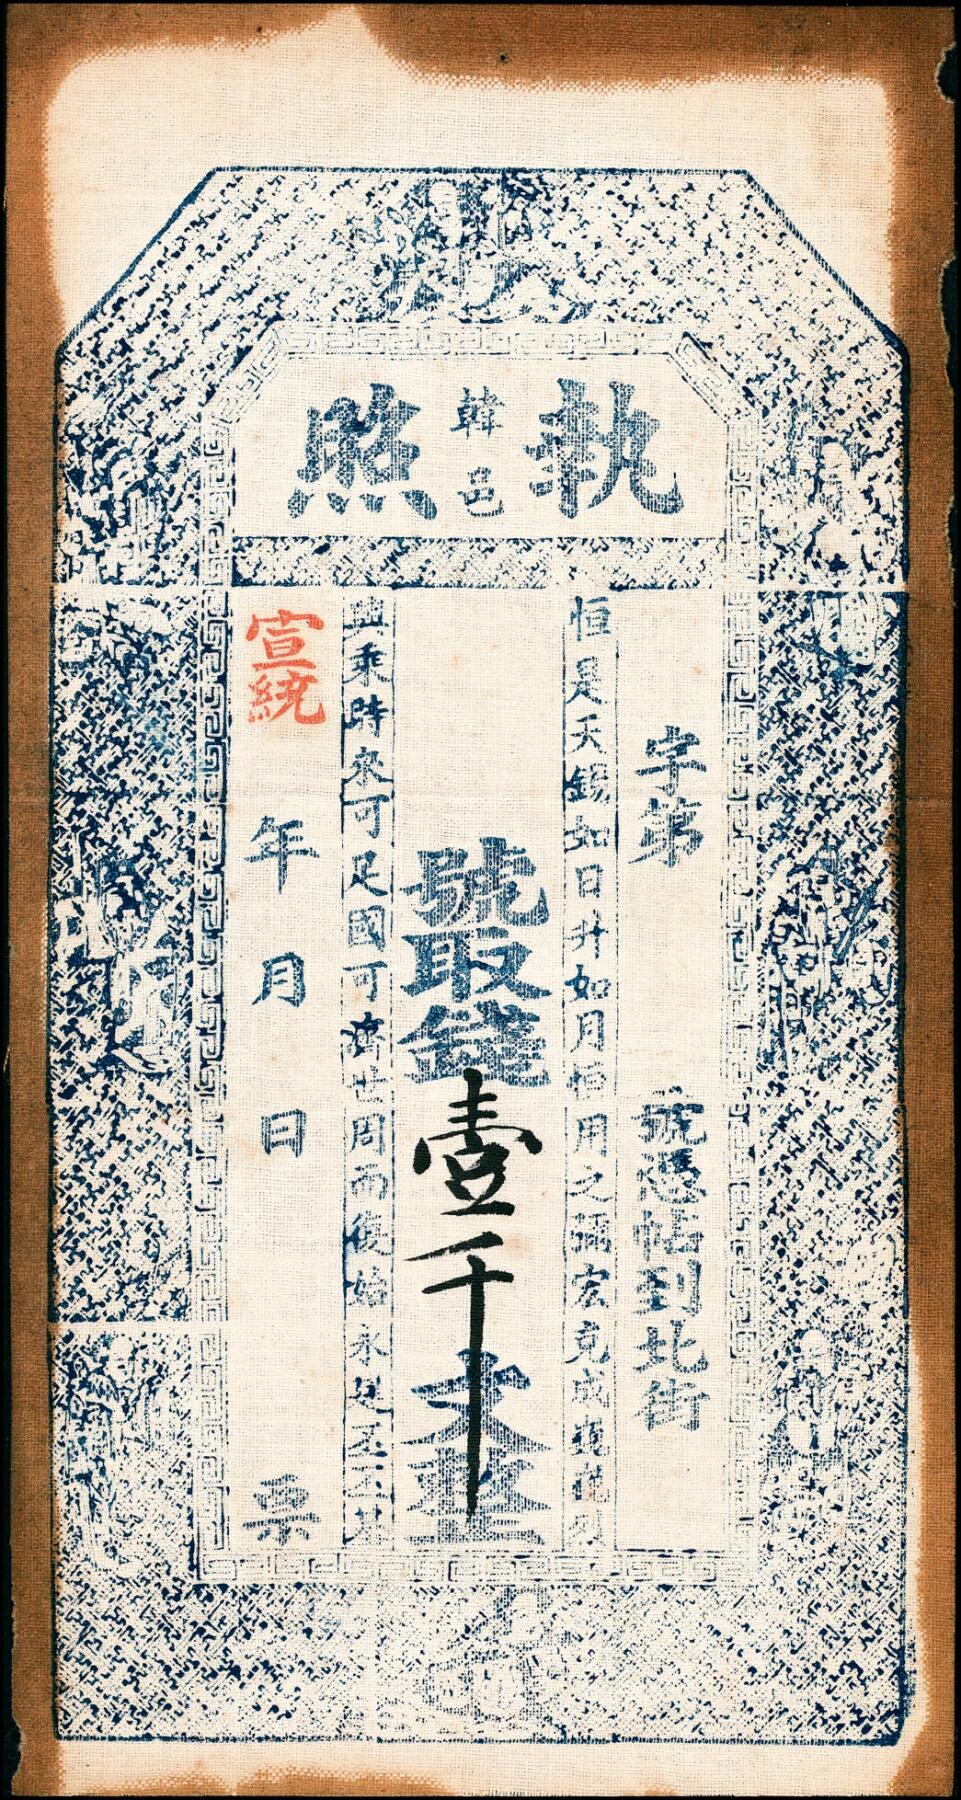 執照
韓邑
字第
號憑帖到北街
恒是天錫如日升如月恒用之彌宏克成
號取錢壹千文整
興乘時來可足國可濟世周而復始永
宣統
年月日
票